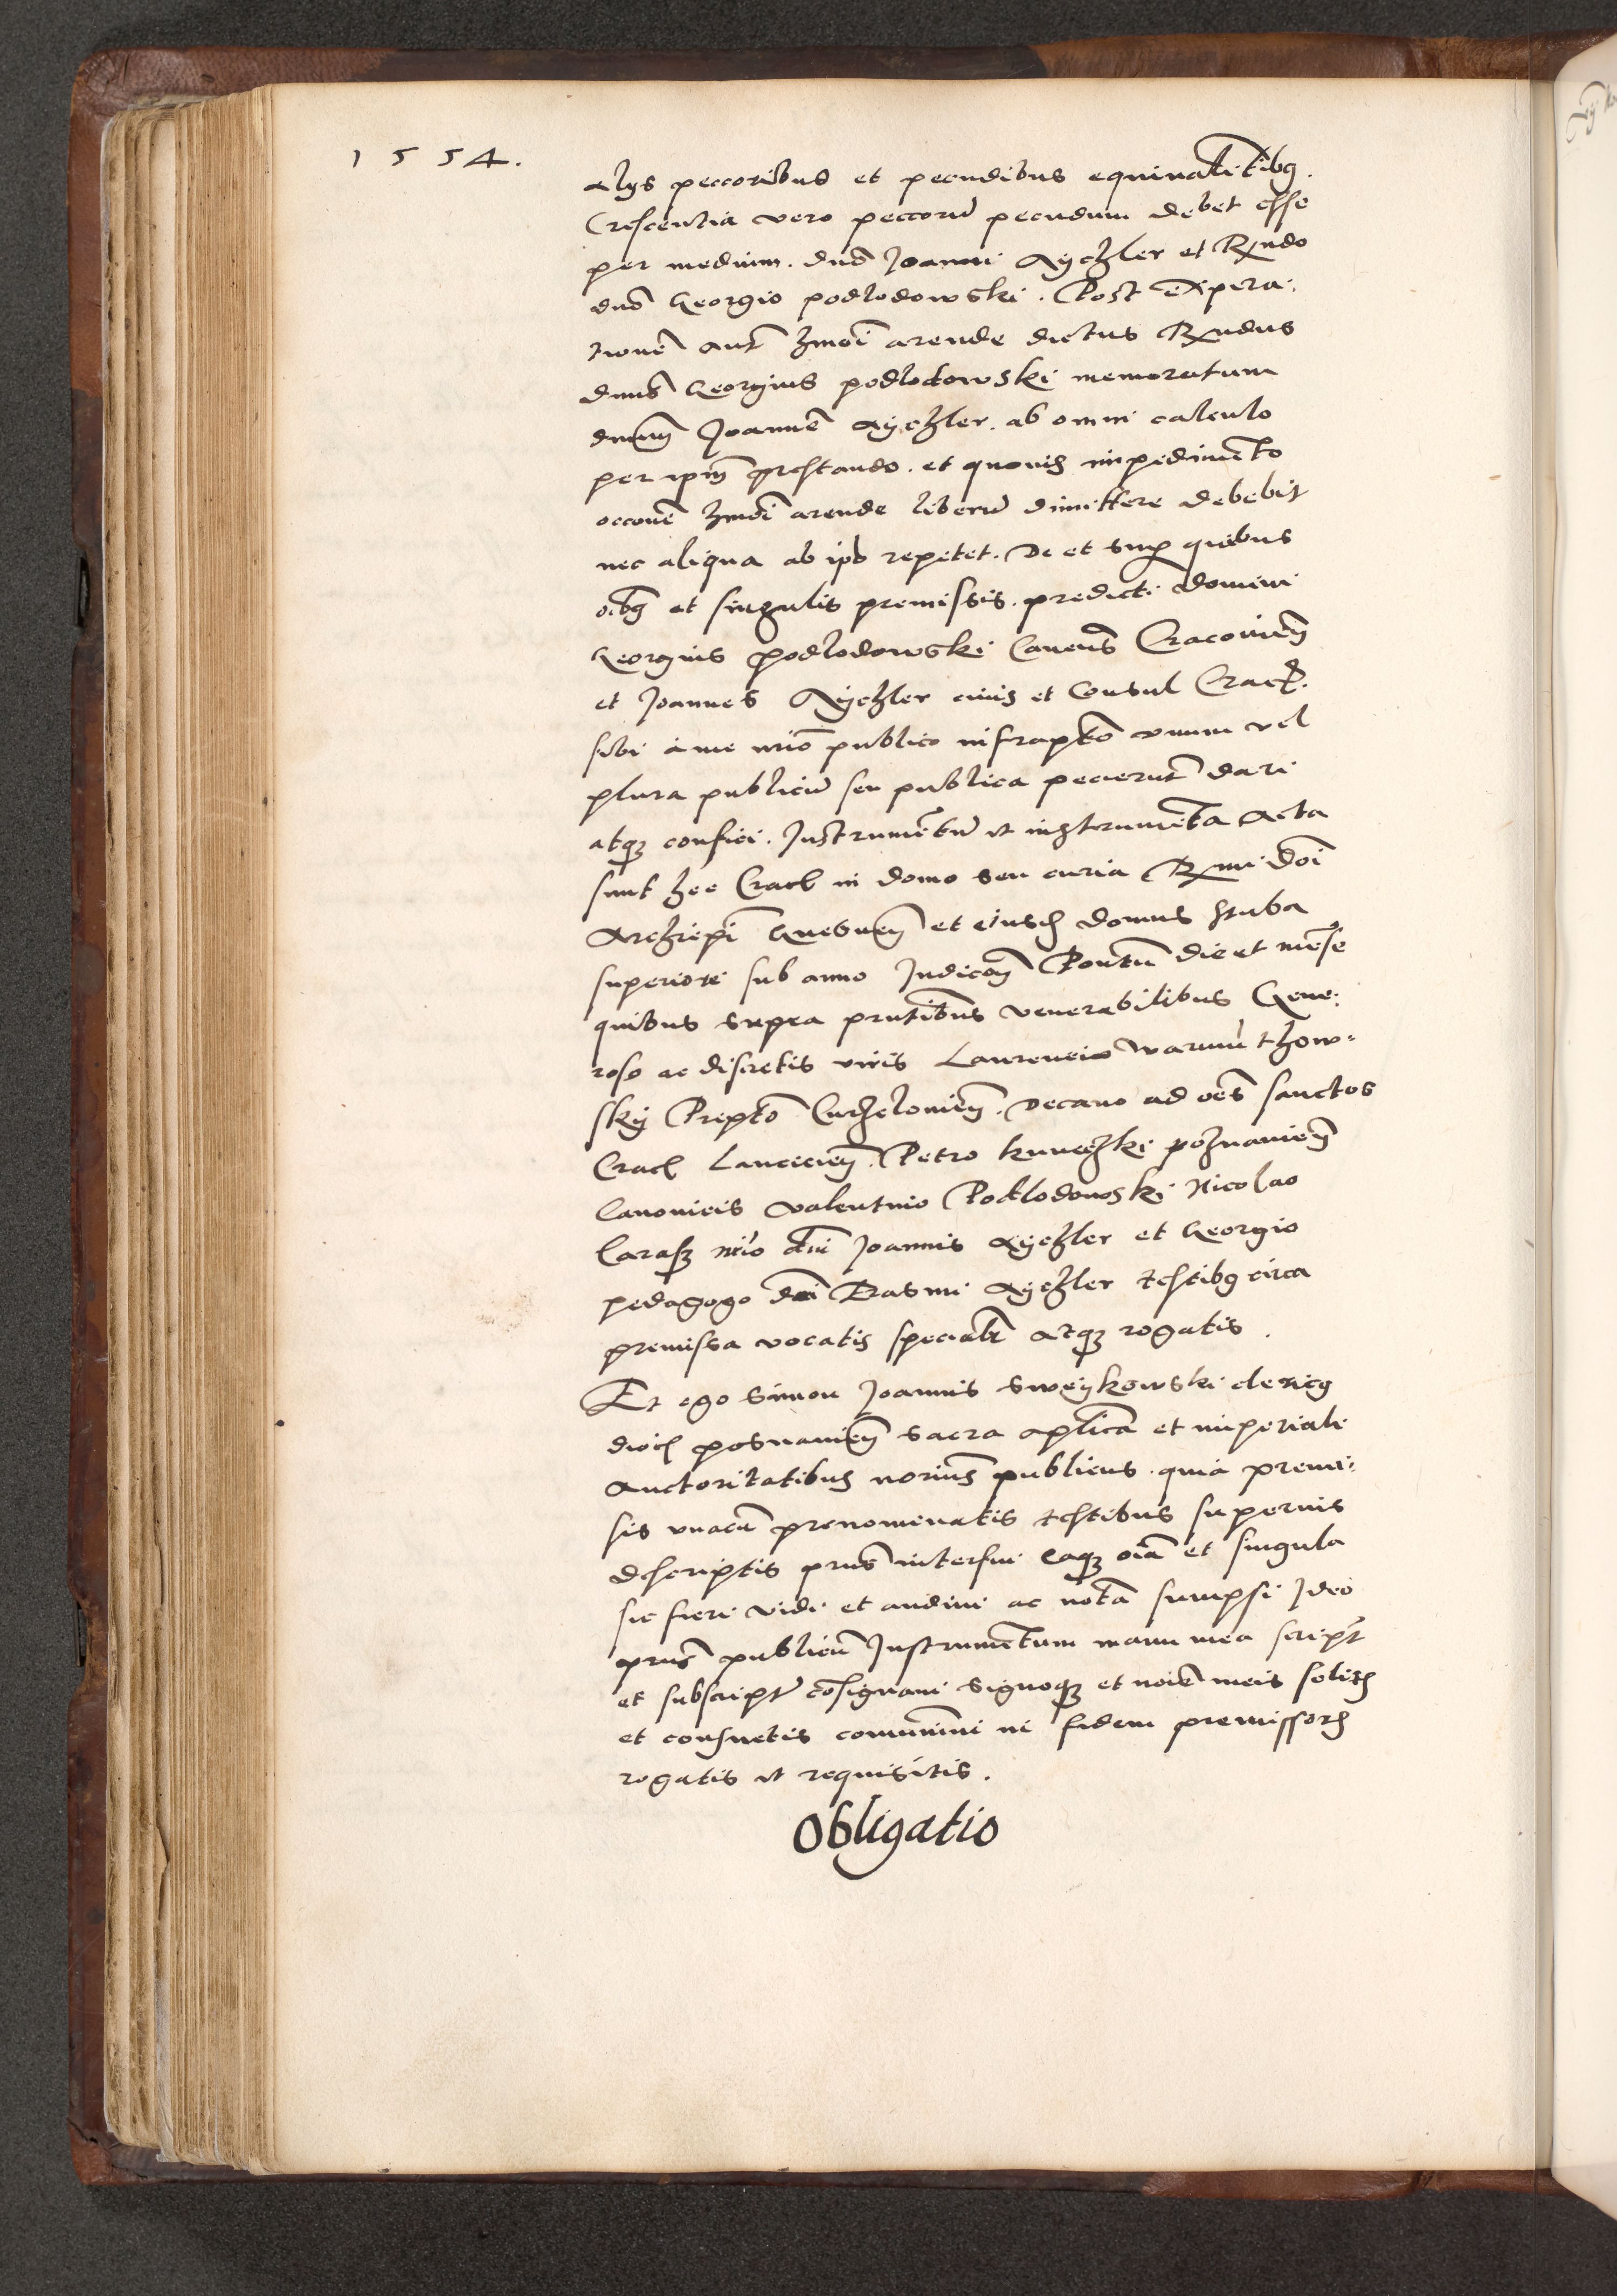 1554.
alys peccoribus et pecudibus equivalētibꝫ.
Crescentia vero peccorū pecudum debet esse
per medium. dnō Joanni Aychler et Rndo
dnō Georgio podlodowski. Post expira:
tionē autē hmōi arende dictus Rndus
dnus Georgius podlodowski memoratum
dnum Joannē Aychler. ab omni calculo
per ipm prestando. et quovis impedimēto
occōne hmōi arende liberū dimittere debebit
nec aliqua ab ipō repetet. De et sup quibus
oibꝫ et singulis premissis. predicti domini
Georgius podlodowski Canēus Cracovieñ
et Joannes Aychler civis et Consul Crac̄.
sibi a me nrio publico infraptō unum vel
plura publicū seu publica pecierūt dari
atqꝫ confici. Instrumētū et instrumēta Acta
sunt hec Crac̄ in domo seu curia Rmi Dōi
Archiepi Gnesneñ et eiusd̄ domus stuba
superiori sub anno Indicōe Pontū die et mēse
quibus supra pntibus venerabilibus Gene:
roso ac discretis viris Laurencio
sky Preptō Curzelovieñ. Decano ad oēs sanctos
Crac̄ Lancicieñ. Petro poznanieñ
Canonicis Valentino Podlodowski Nicolao
nrio dni Joannis Aychler et Georgio
pedagogo dni Erasmi Aychler testibꝫ circa
premissa vocatis specialr atqꝫ rogatis.
Et ego Simon Joannis Sweykowski clericꝫ
dioc̄ posnanieñ sacra aplica et imperiali
auctoritatibus norius publicus. quia premi:
sis unacū prenomenatis testibus supervis
descriptis pnus interfui eaqꝫ oia et singula
sic fieri vidi et audivi ac notā sumpsi Ideo
pnus publicū Instrumētum manu mea script
et subscript cōsignavi signoqꝫ et noie meis solitis
et consuetis comunivi in fidem premissorꝫ
rogatis et requisitis.
Obligatio